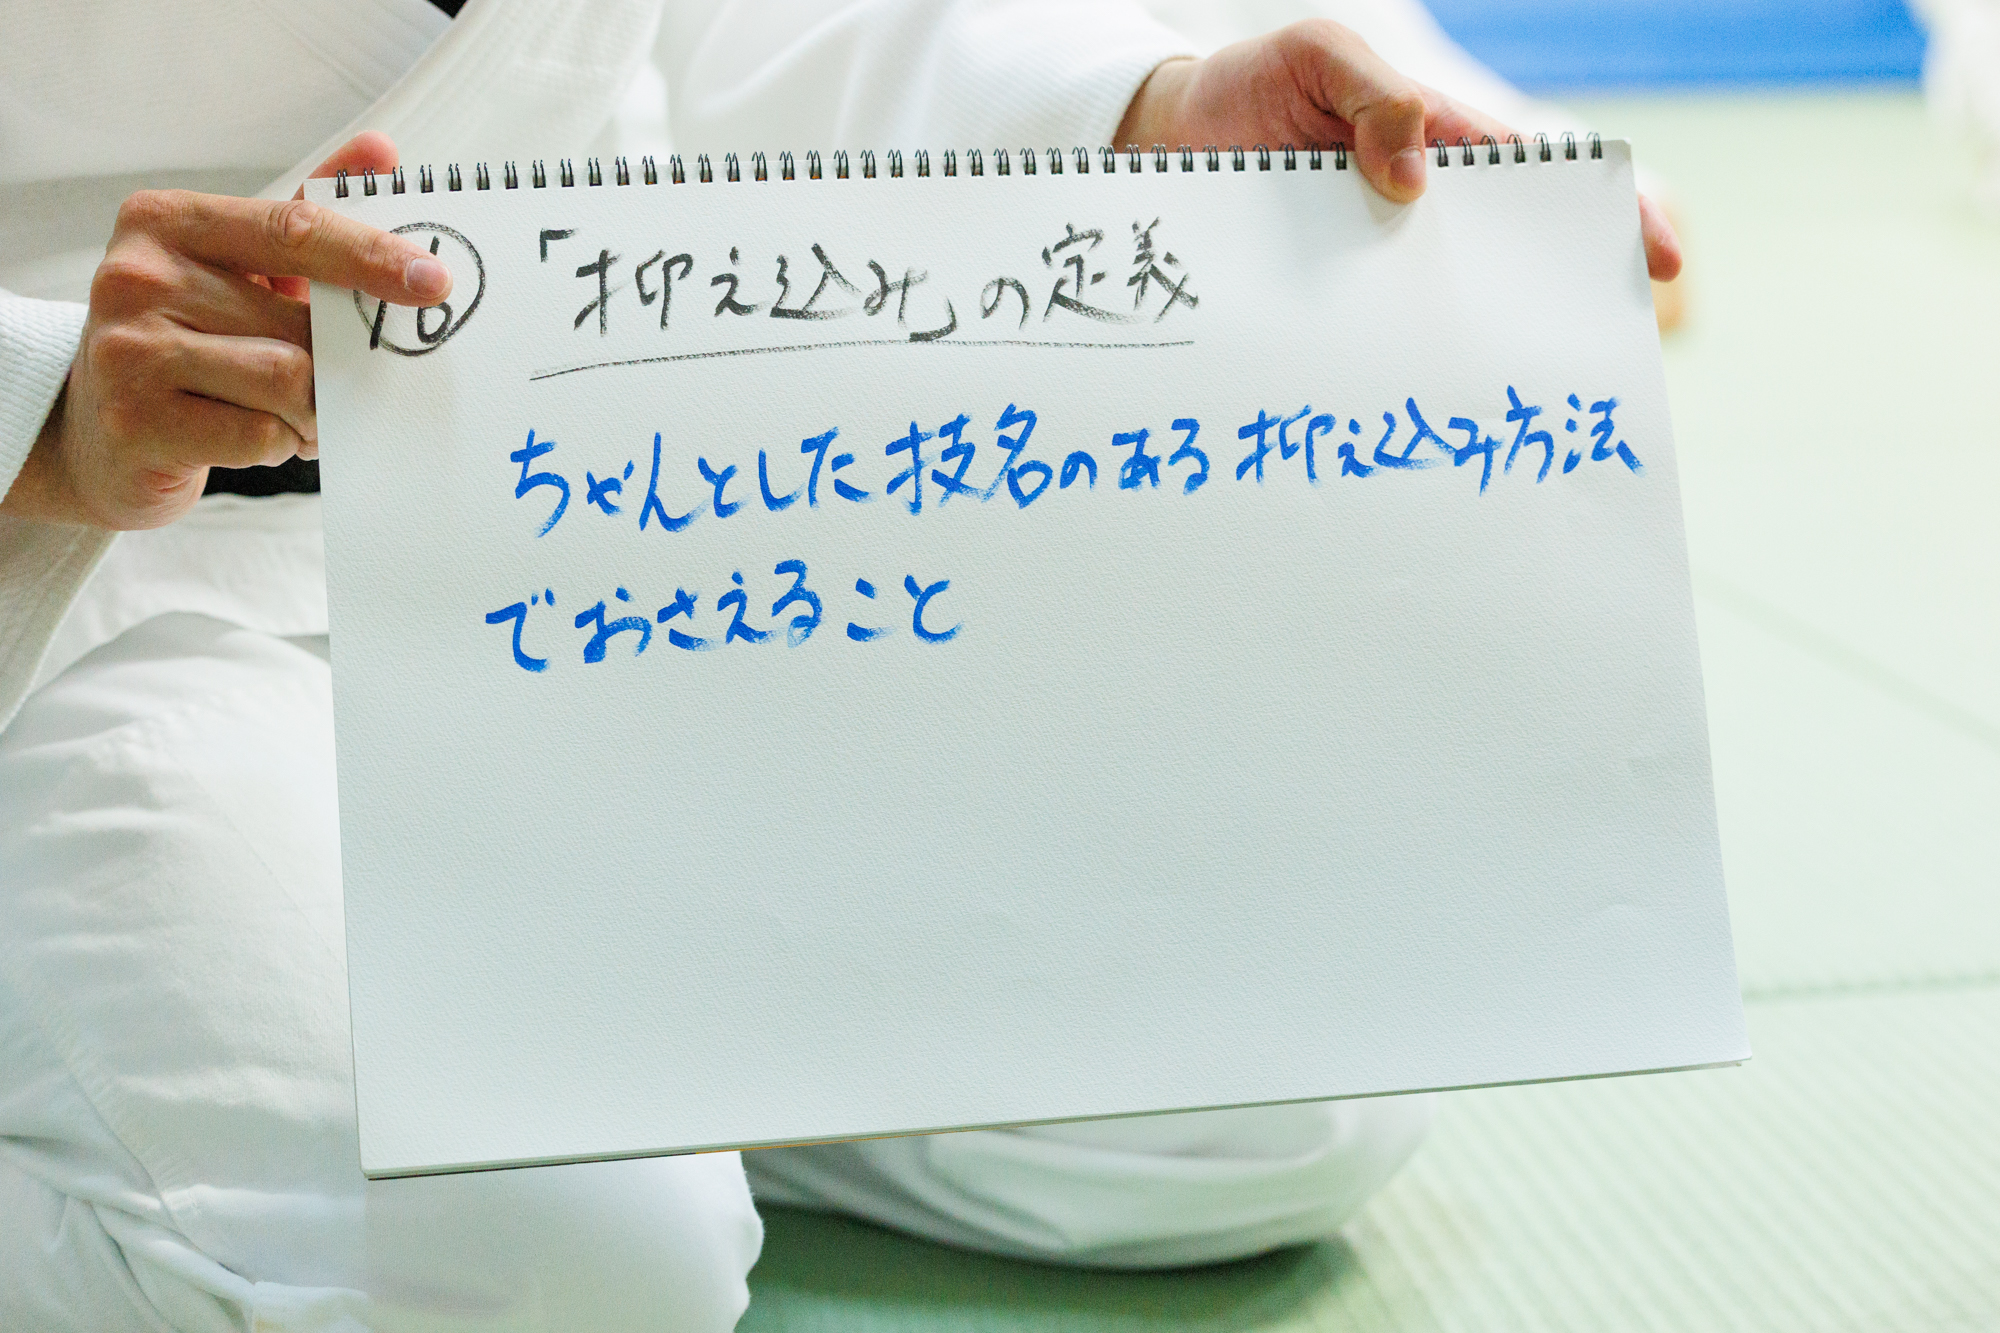 ⑯ 「抑え込み」の定義
ちゃんとした技名のある抑え込み方法
でおさえること